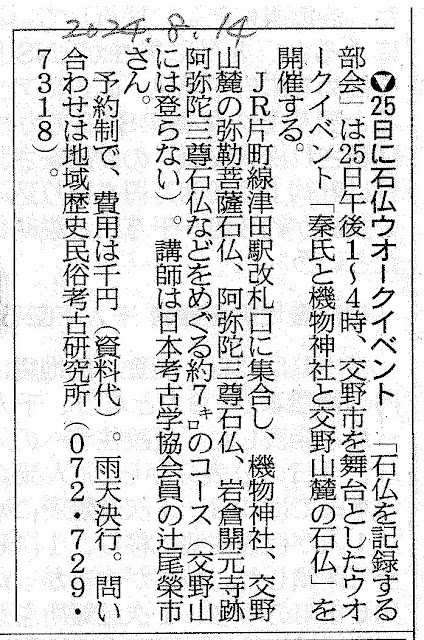 2024.8.14
▼25日に石仏ウオークイベント　「石仏を記録する
部会」は25日午後1〜4時、交野市を舞台としたウオ
ークイベント「秦氏と機物神社と交野山麓の石仏」を
開催する。
ＪＲ片町線津田駅改札口に集合し、機物神社、交野
山麓の弥勒菩薩石仏、阿弥陀三尊石仏、岩倉開元寺跡
阿弥陀三尊石仏などをめぐる約7㌔のコース（交野山
には登らない）。講師は日本考古学協会会員の辻尾榮市
さん。
予約制で、費用は千円（資料代）。雨天決行。問い
合わせは地域歴史民俗考古研究所（072・729・
7318）。